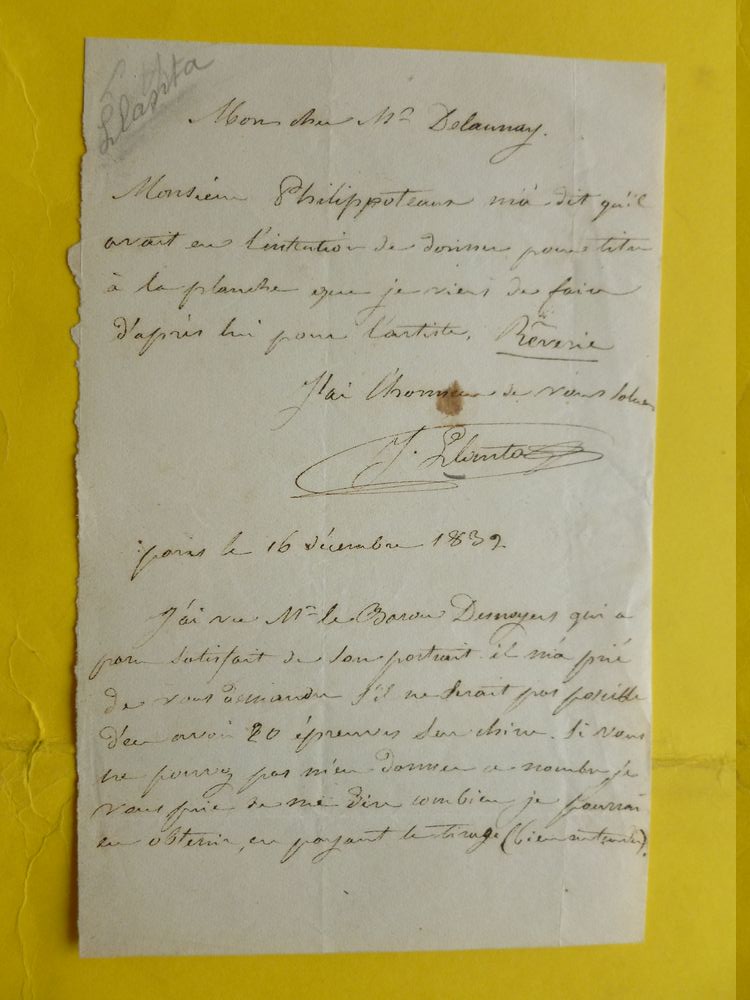 Llanta
Mon cher Mr Delaunay.
Monsieur Philippoteaux m'a dit qu'il
avait eu l'intention de donner pour titre
à la planche que je viens de faire
d'après lui pour l'artiste, Rêverie
J'ai l'honneur de vous saluer
J. Llanta
paris le 16 décembre 1839
J'ai vu Mr le Baron Desnoyers qui a
paru satisfait de son portrait il m'a prié
de vous demander s'il ne serait pas possible
d'en avoir 20 épreuves sur chine. Si vous
ne pouvez pas m'en donner ce nombre je
vous prie de me dire combien je pourrai
en obtenir, en payant le tirage (bien entendu).